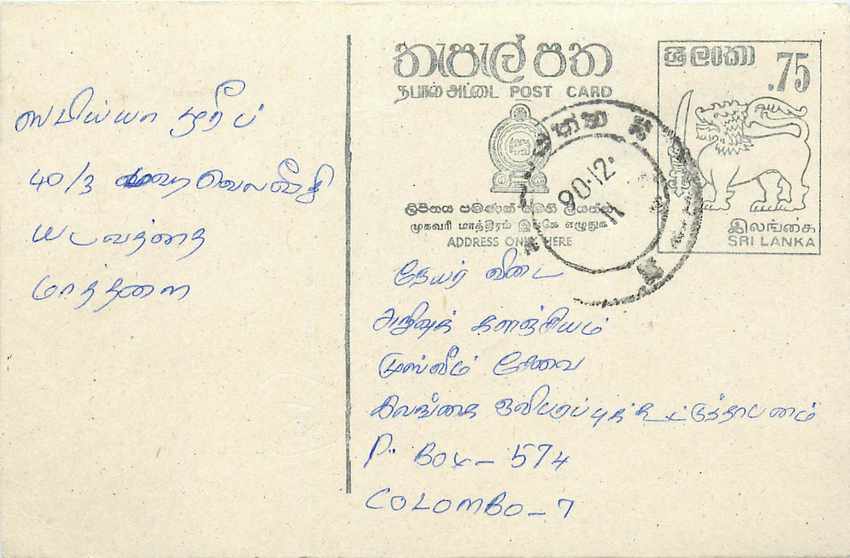 ஸமிய்யா ஷரீப்
40/3 வெலவீதி
யடவத்தை
மாத்தளை
තැපැල් පත
தபால் அட்டை POST CARD
ශ්‍රී ලංකා
.75
ලිපිනය පමණක් මෙහි ලියන්න
முகவரி மாத்திரம் இங்கே எழுதுக
ADDRESS ONLY HERE
இலங்கை
SRI LANKA
90.12.
11
நேயர் விடை
அறிவுக் களஞ்சியம்
முஸ்லீம் சேவை
இலங்கை ஒலிபரப்புக் கூட்டுத்தாபனம்
P. BOX - 574
COLOMBO - 7